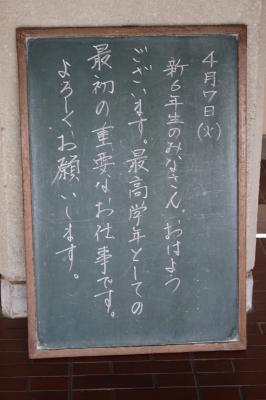 4月7日(火)
新6年生のみなさん、おはよう
ございます。最高学年としての
最初の重要なお仕事です。
よろしくお願いします。